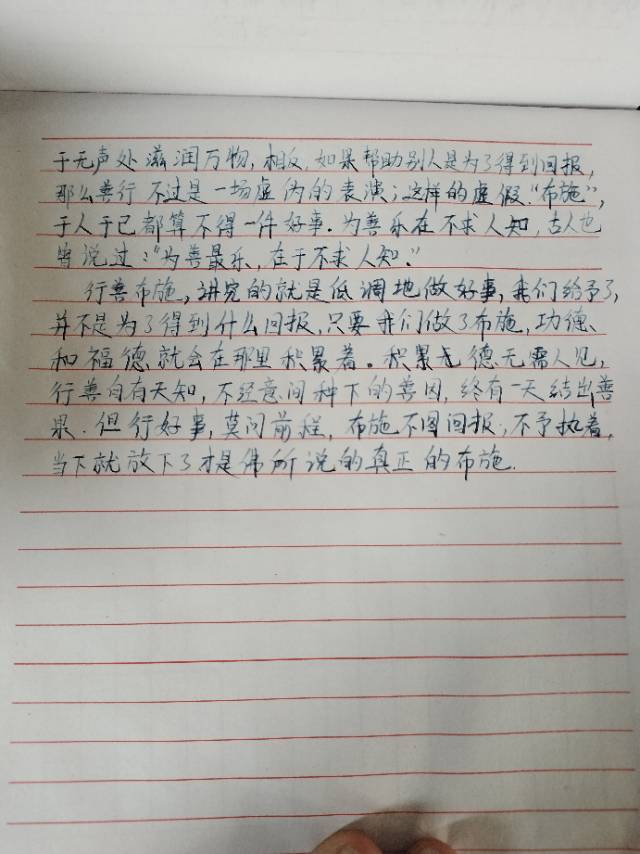 于无声处滋润万物，相反，如果帮助别人是为了得到回报，
那么善行不过是一场虚伪的表演；这样的虚假“布施”，
于人于已都算不得一件好事．为善乐在不求人知，古人也
曾说过：“为善最乐、在于不求人知．”
行善布施，讲究的就是低调地做好事，我们给予了，
并不是为了得到什么回报，只要我们做了布施，功德、
和福德就会在那里积累着．积累无德无需人见，
行善自有天知，不经意间种下的善因，终有一天结出善
果．但行好事，莫问前程，布施不图回报，不予执着，
当下就放下了才是佛所说的真正的布施．